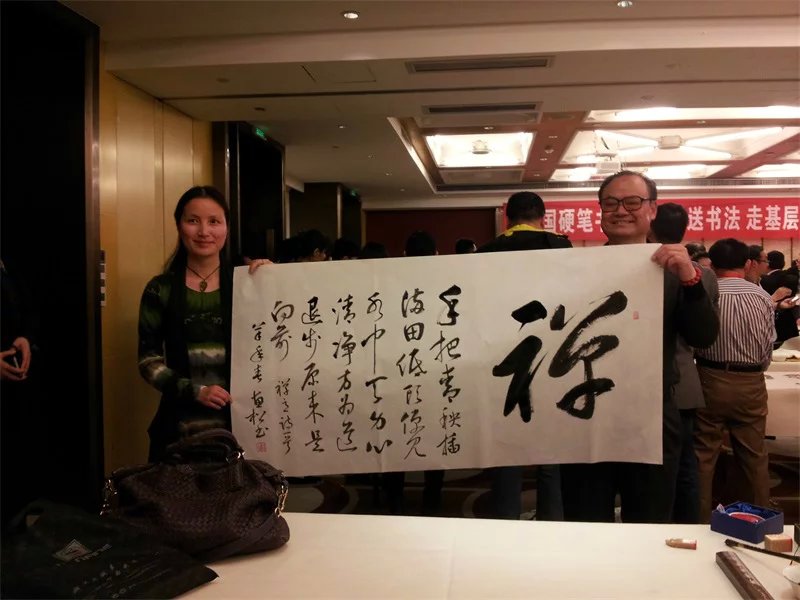 国硬笔
送书法 走基层
禅
手把青秧插
满田低头便见
水中天
心
清净方为道
退步原来是
向前
羊年春